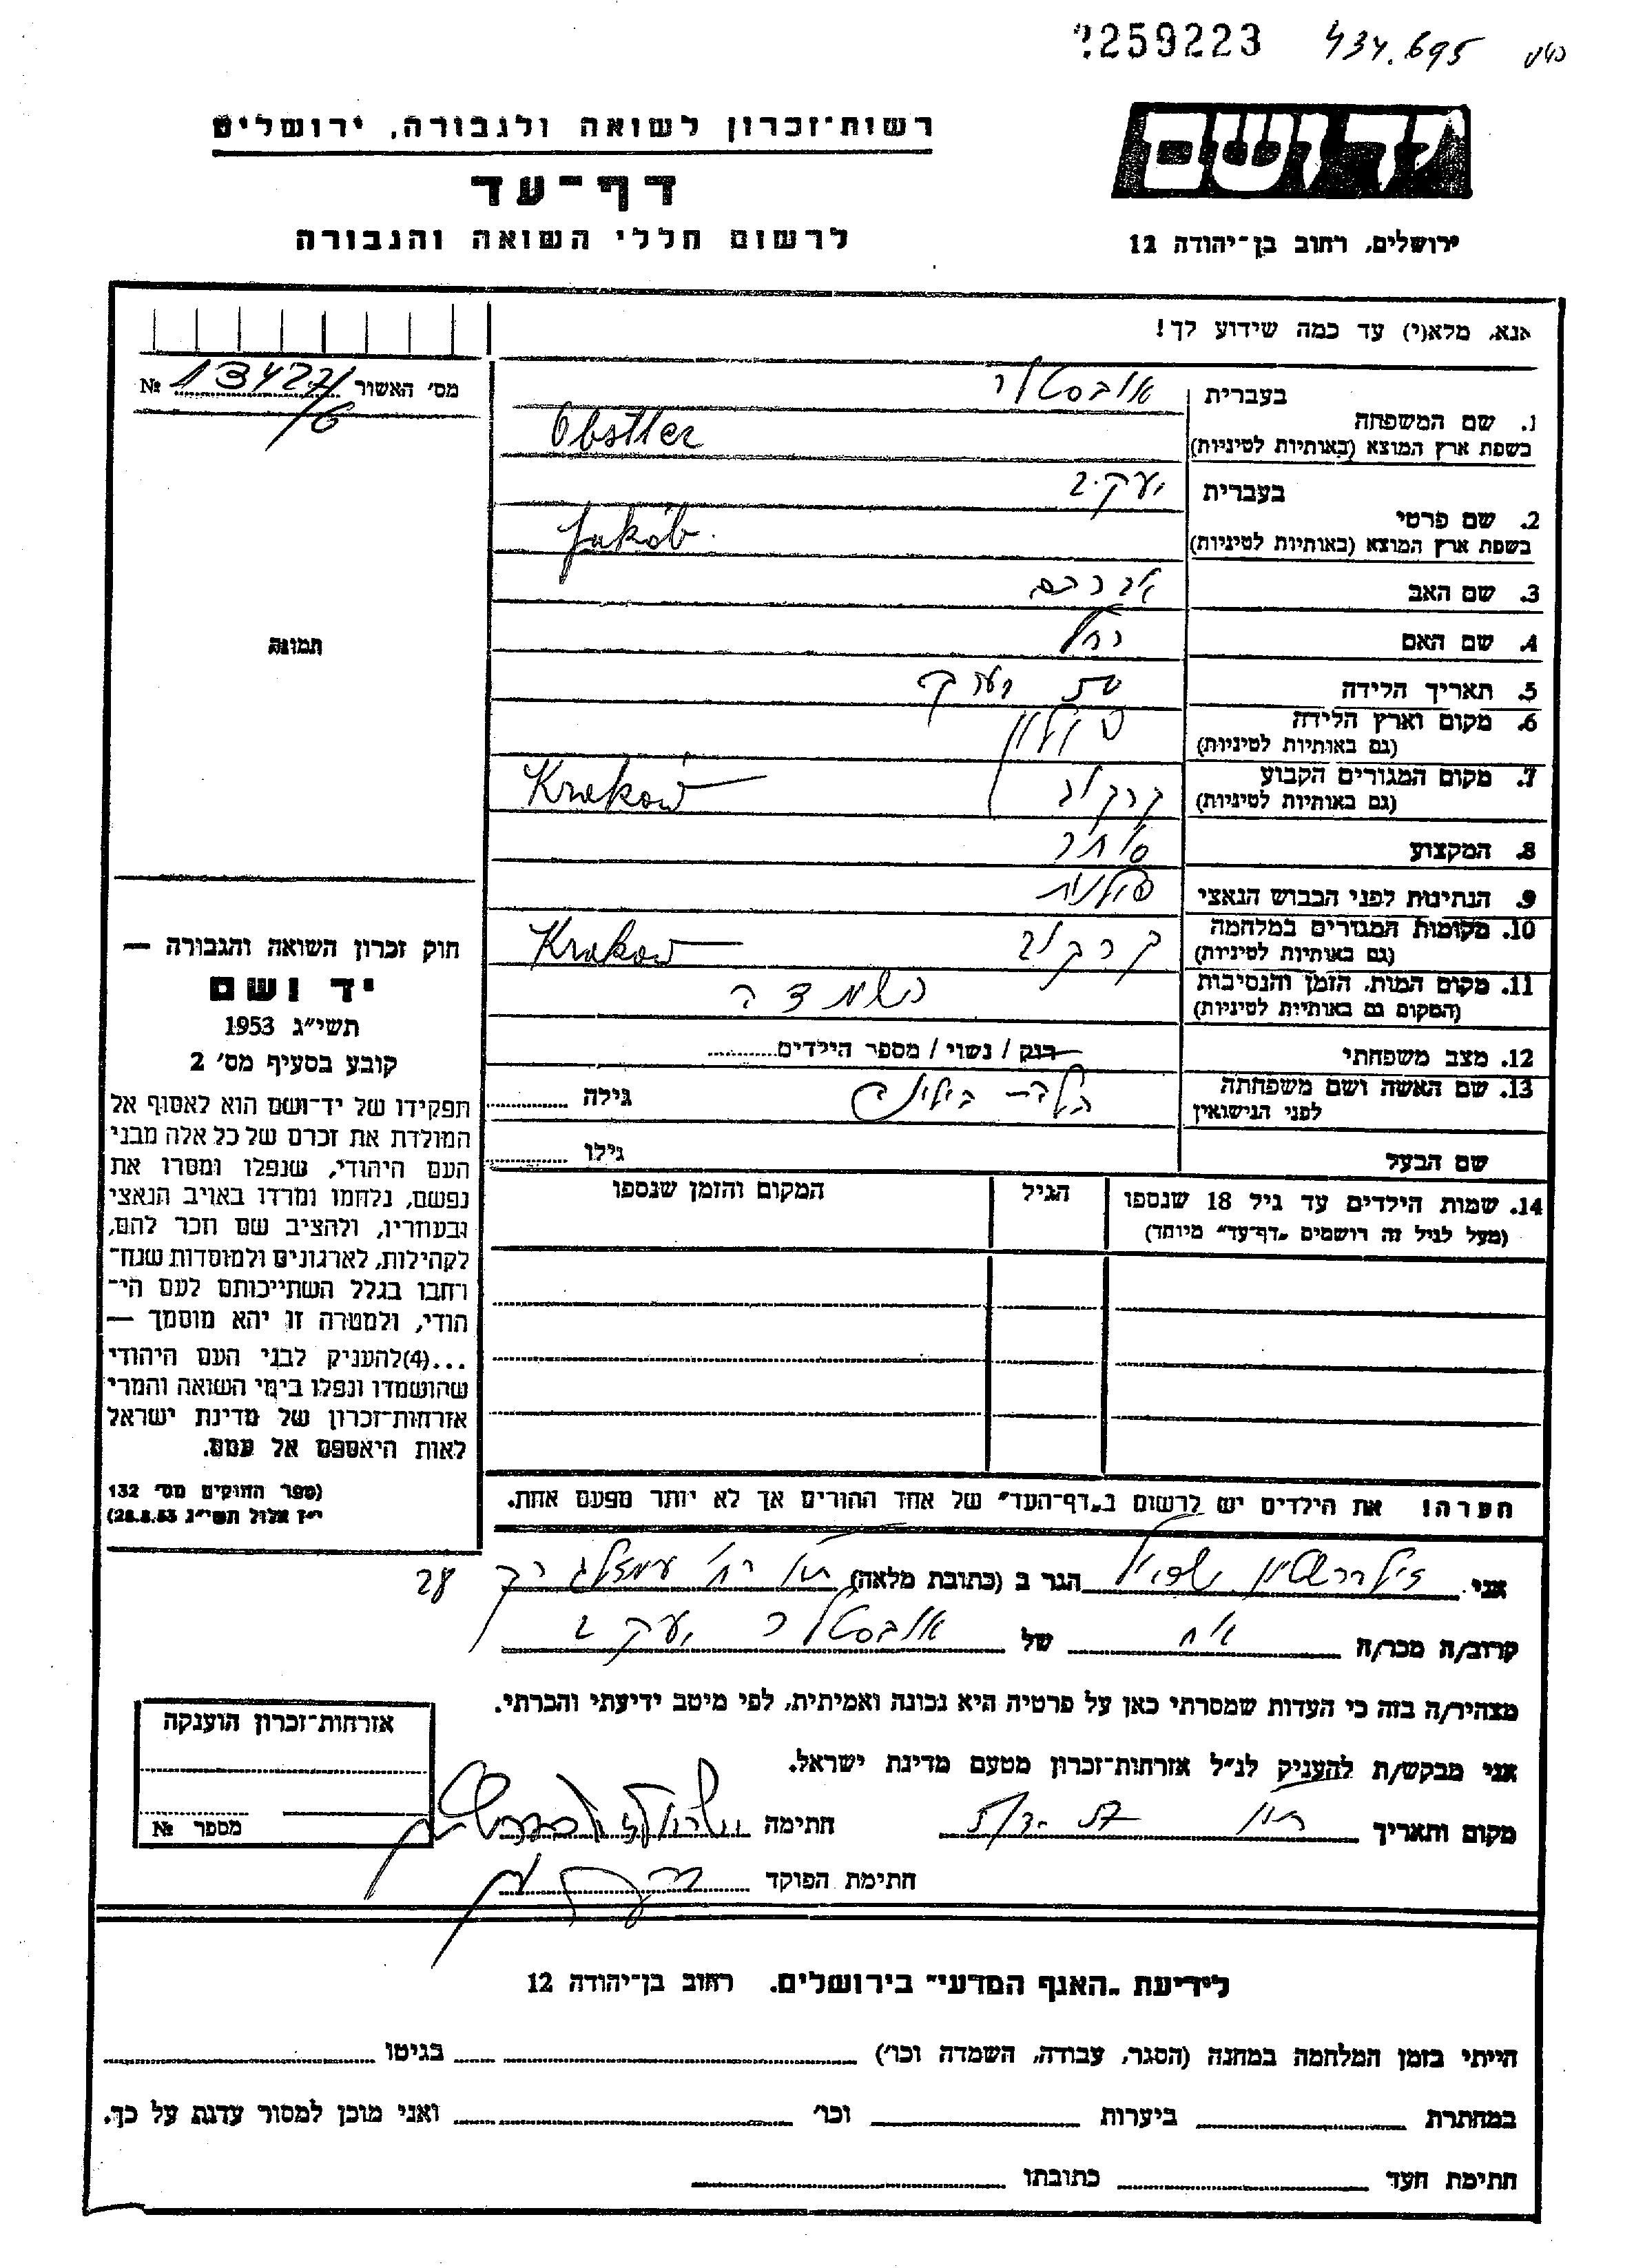 259223 434.695
רשות־זכרון לשואה ולגבורה, ירושלים
יד ושם
דף־עד
לרשום חללי השואה והגבורה
ירושלים, רחוב בן־יהודה 12
אנא, מלא(י) עד כמה שידוע לך!
מס׳ האשור 134227/6 №
1. שם המשפחה
בעברית אובסטלר
בשפת ארץ המוצא (באותיות לטיניות) Obstler
2. שם פרטי
בעברית יעקב
בשפת ארץ המוצא (באותיות לטיניות) Jakób
3. שם האב אברהם
4. שם האם רחל
5. תאריך הלידה
6. מקום וארץ הלידה פולין
(גם באותיות לטיניות)
7. מקום המגורים הקבוע קרקוב Kraków
(גם באותיות לטיניות)
8. המקצוע סוחר
9. הנתינות לפני הכבוש הנאצי פולנית
10. מקומות המגורים במלחמה קרקוב Kraków
(גם באותיות לטיניות)
11. מקום המות, הזמן והנסיבות השמדה
(המקום גם באותיות לטיניות)
12. מצב משפחתי רווק / נשוי / מספר הילדים
13. שם האשה ושם משפחתה
לפני הנישואין
גילה
שם הבעל
גילו
14. שמות הילדים עד גיל 18 שנספו
(מעל לגיל זה רושמים „דף־עד" מיוחד)
הגיל
המקום והזמן שנספו
הערה! את הילדים יש לרשום ב„דף־העד" של אחד ההורים אך לא יותר מפעם אחת.
תמונה
חוק זכרון השואה והגבורה —
יד ושם
תשי״ג 1953
קובע בסעיף מס׳ 2
תפקידו של יד־ושם הוא לאסוף אל
המולדת את זכרם של כל אלה מבני
העם היהודי, שנפלו ומסרו את
נפשם, נלחמו ומרדו באויב הנאצי
ובעוזריו, ולהציב שם וזכר להם,
לקהילות, לארגונים ולמוסדות שנח־
רחבו בגלל השתייכותם לעם הי־
הודי, ולמטרה זו יהא מוסמך —
...(4)להעניק לבני העם היהודי
שהושמדו ונפלו בימי השואה והמרי
אזרחות־זכרון של מדינת ישראל
לאות היאספם אל עמם.
(ספר החוקים מס׳ 132
י״ז אלול תשי״ג 28.8.53)
אני זילברשטיין הגר ב (כתובת מלאה) 28
קרוב/ה מכר/ה אח של אובסטלר יעקב
מצהיר/ה בזה כי העדות שמסרתי כאן על פרטיה היא נכונה ואמיתית, לפי מיטב ידיעתי והכרתי.
אני מבקש/ת להעניק לנ״ל אזרחות־זכרון מטעם מדינת ישראל.
מקום ותאריך חתימה
חתימת הפוקד
אזרחות־זכרון הוענקה
מספר №
לידיעת „האגף המדעי" בירושלים. רחוב בן־יהודה 12
הייתי בזמן המלחמה במחנה (הסגר, עבודה, השמדה וכו׳) בגיטו
במחתרת ביערות וכו׳ ואני מוכן למסור עדות על כך.
חתימת העד כתובתו